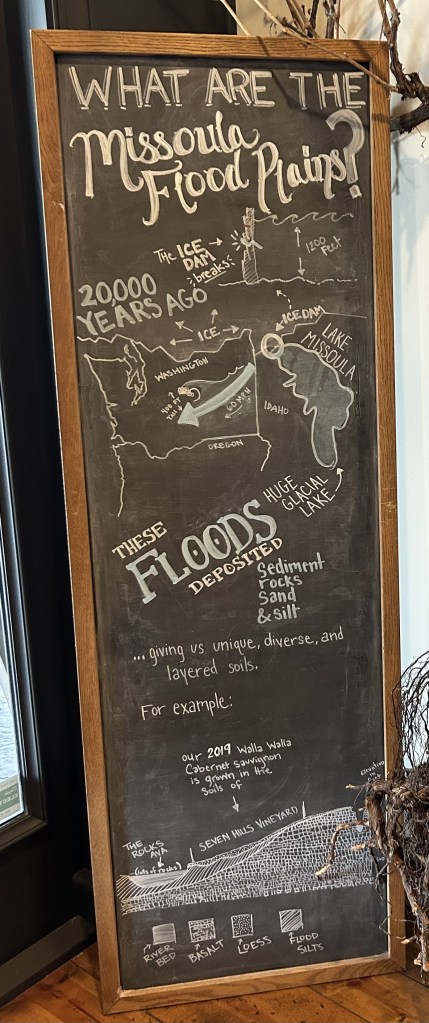 WHAT ARE THE
Missoula
Flood Plains?
The ICE
DAM
breaks
1200 Feet
20,000
YEARS AGO
ICE
ICE DAM
WASHINGTON
LAKE
MISSOULA
400 FT
TALL
60 MPH
IDAHO
OREGON
HUGE
GLACIAL
LAKE
THESE
FLOODS
DEPOSITED
Sediment
rocks
Sand
& silt
...giving us unique, diverse, and
layered soils.
For example:
our 2019 Walla Walla
Cabernet Sauvignon
is grown in the
soils of
Elevation
THE ROCKS
AVA
(lots of rocks)
SEVEN HILLS VINEYARD
RIVER
BED
BASALT
LOESS
FLOOD
SILTS